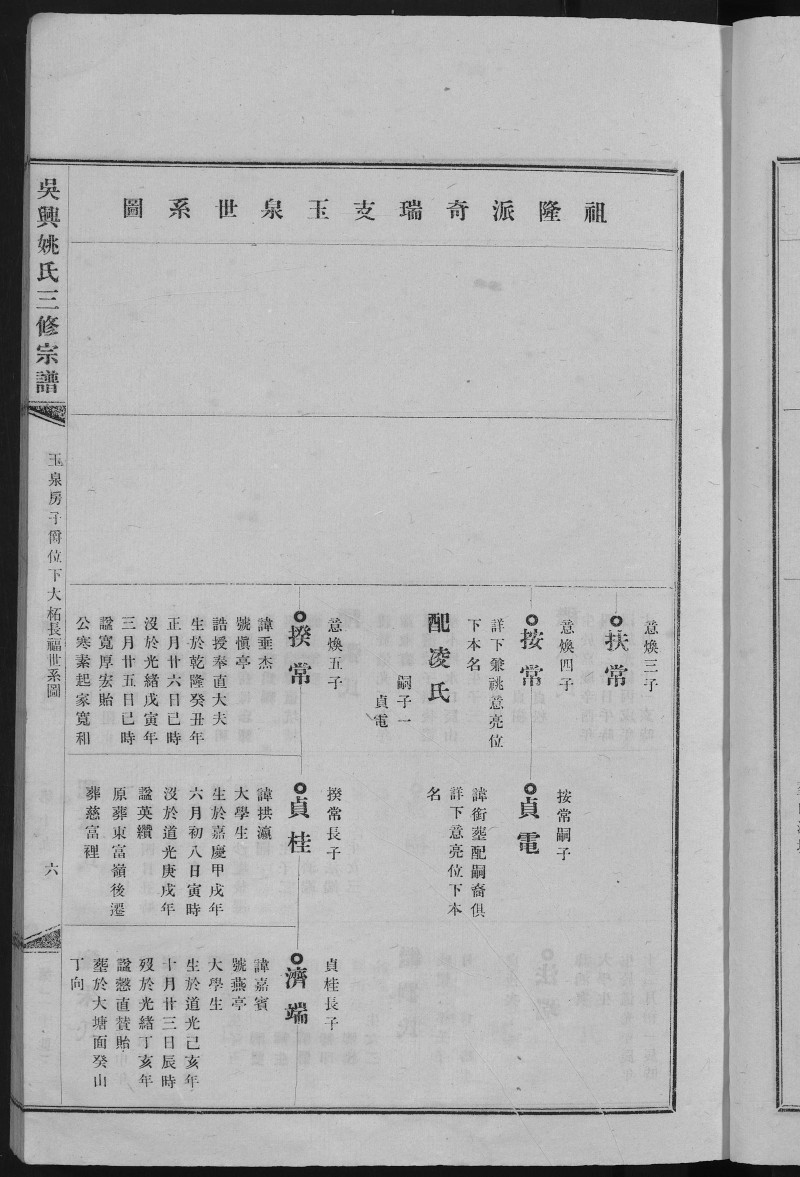 祖隆派奇瑞支玉泉世系圖
意煥三子
扶常
意煥四子
按常
詳下兼祧意亮位
下本名
配凌氏
嗣子一
貞電
意煥五子
揆常
諱垂杰
號愼亭
誥授奉直大夫
生於乾隆癸丑年
正月廿六日巳時
沒於光緒戊寅年
三月廿五日巳時
諡寬厚宏貽
公寒素起家寬和
按常嗣子
貞電
諱銜塟配嗣裔俱
詳下意亮位下本
名
揆常長子
貞桂
諱拱瀛
大學生
生於嘉慶甲戌年
六月初八日寅時
沒於道光庚戌年
諡英纘
原葬東富嶺後遷
葬慈富裡
貞桂長子
濟端
諱嘉賓
號燕亭
大學生
生於道光己亥年
十月廿三日辰時
歿於光緒丁亥年
諡愨直賛貽
塟於大塘面癸山
丁向
吳興姚氏三修宗譜
玉泉房子爵位下大柘長福世系圖
六